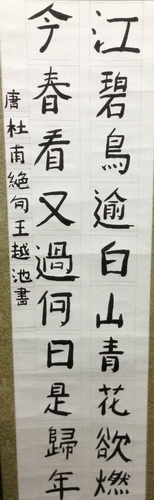 江碧鳥逾白山青花欲燃
今春看又過何日是歸年
唐杜甫絕句王越池書